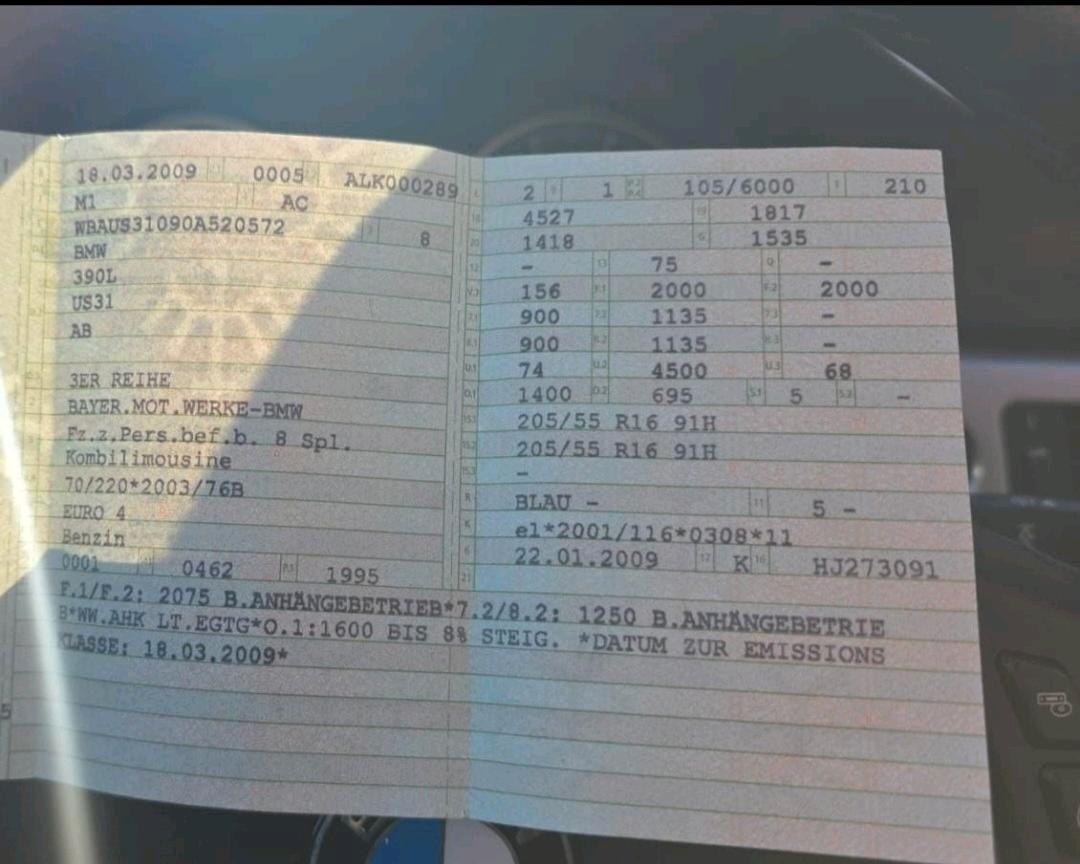 18.03.2009 0005 ALK000289
M1 AC
WBAUS31090A520572 8
BMW
390L
US31
AB
3ER REIHE
BAYER.MOT.WERKE-BMW
Fz.z.Pers.bef.b. 8 Spl.
Kombilimousine
70/220*2003/76B
EURO 4
Benzin
0001 0462 1995
2 1 105/6000 210
4527 1817
1418 1535
- 75 -
156 2000 2000
900 1135 -
900 1135 -
74 4500 68
1400 695 5 -
205/55 R16 91H
205/55 R16 91H
-
BLAU - 5 -
e1*2001/116*0308*11
22.01.2009 K HJ273091
F.1/F.2: 2075 B.ANHÄNGEBETRIEB*7.2/8.2: 1250 B.ANHÄNGEBETRIE
B*WW.AHK LT.EGTG*O.1:1600 BIS 8% STEIG. *DATUM ZUR EMISSIONS
KLASSE: 18.03.2009*